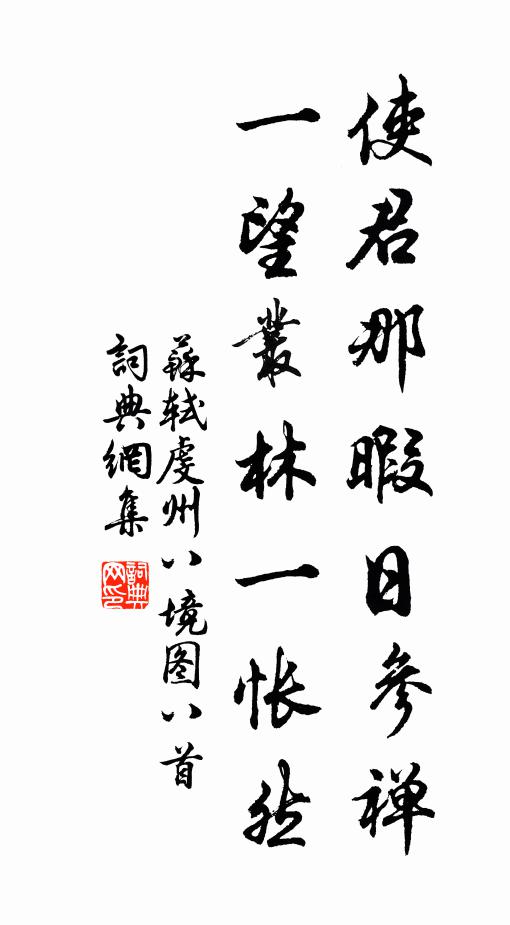 使君那暇日參禪
一望叢林一悵然
蘇軾虔州八境图八首
詞典網集
詞典网印